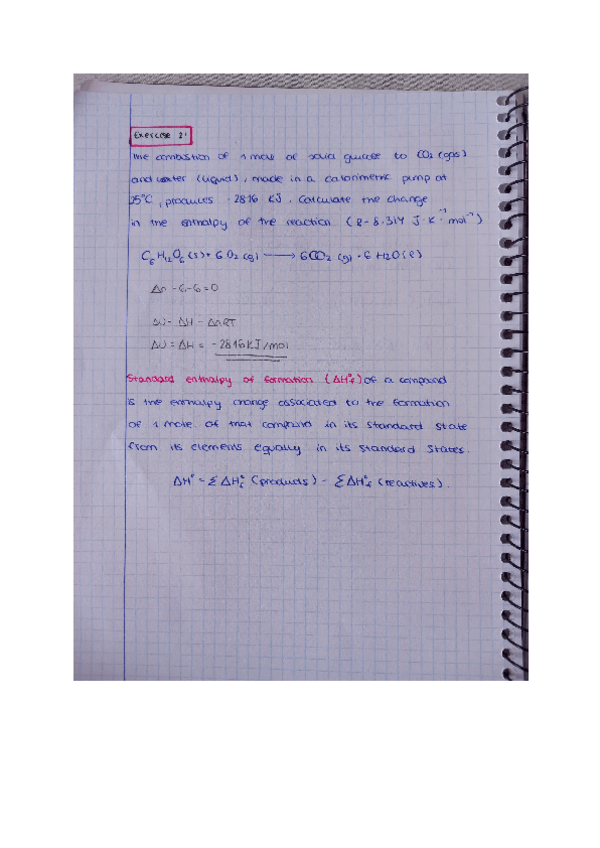 Exercise 2:
The combustion of 1 mole of solid glucose to CO2 (gas)
and water (liquid), made in a calorimetric pump at
25°C, produces -2816 KJ. Calculate the change
in the enthalpy of the reaction (R=8.314 J·K⁻¹mol⁻¹)
C6H12O6 (s) + 6O2 (g) ⟶ 6CO2 (g) + 6H2O (l)
Δn = 6-6=0
ΔU = ΔH - ΔnRT
ΔU = ΔH = -2816KJ/mol
Standard enthalpy of formation (ΔH°f) of a compound
is the enthalpy change associated to the formation
of 1 mole of that compound in its standard state
from its elements equally in its standard states.
ΔH° = Σ ΔH°f (products) - Σ ΔH°f (reactives).